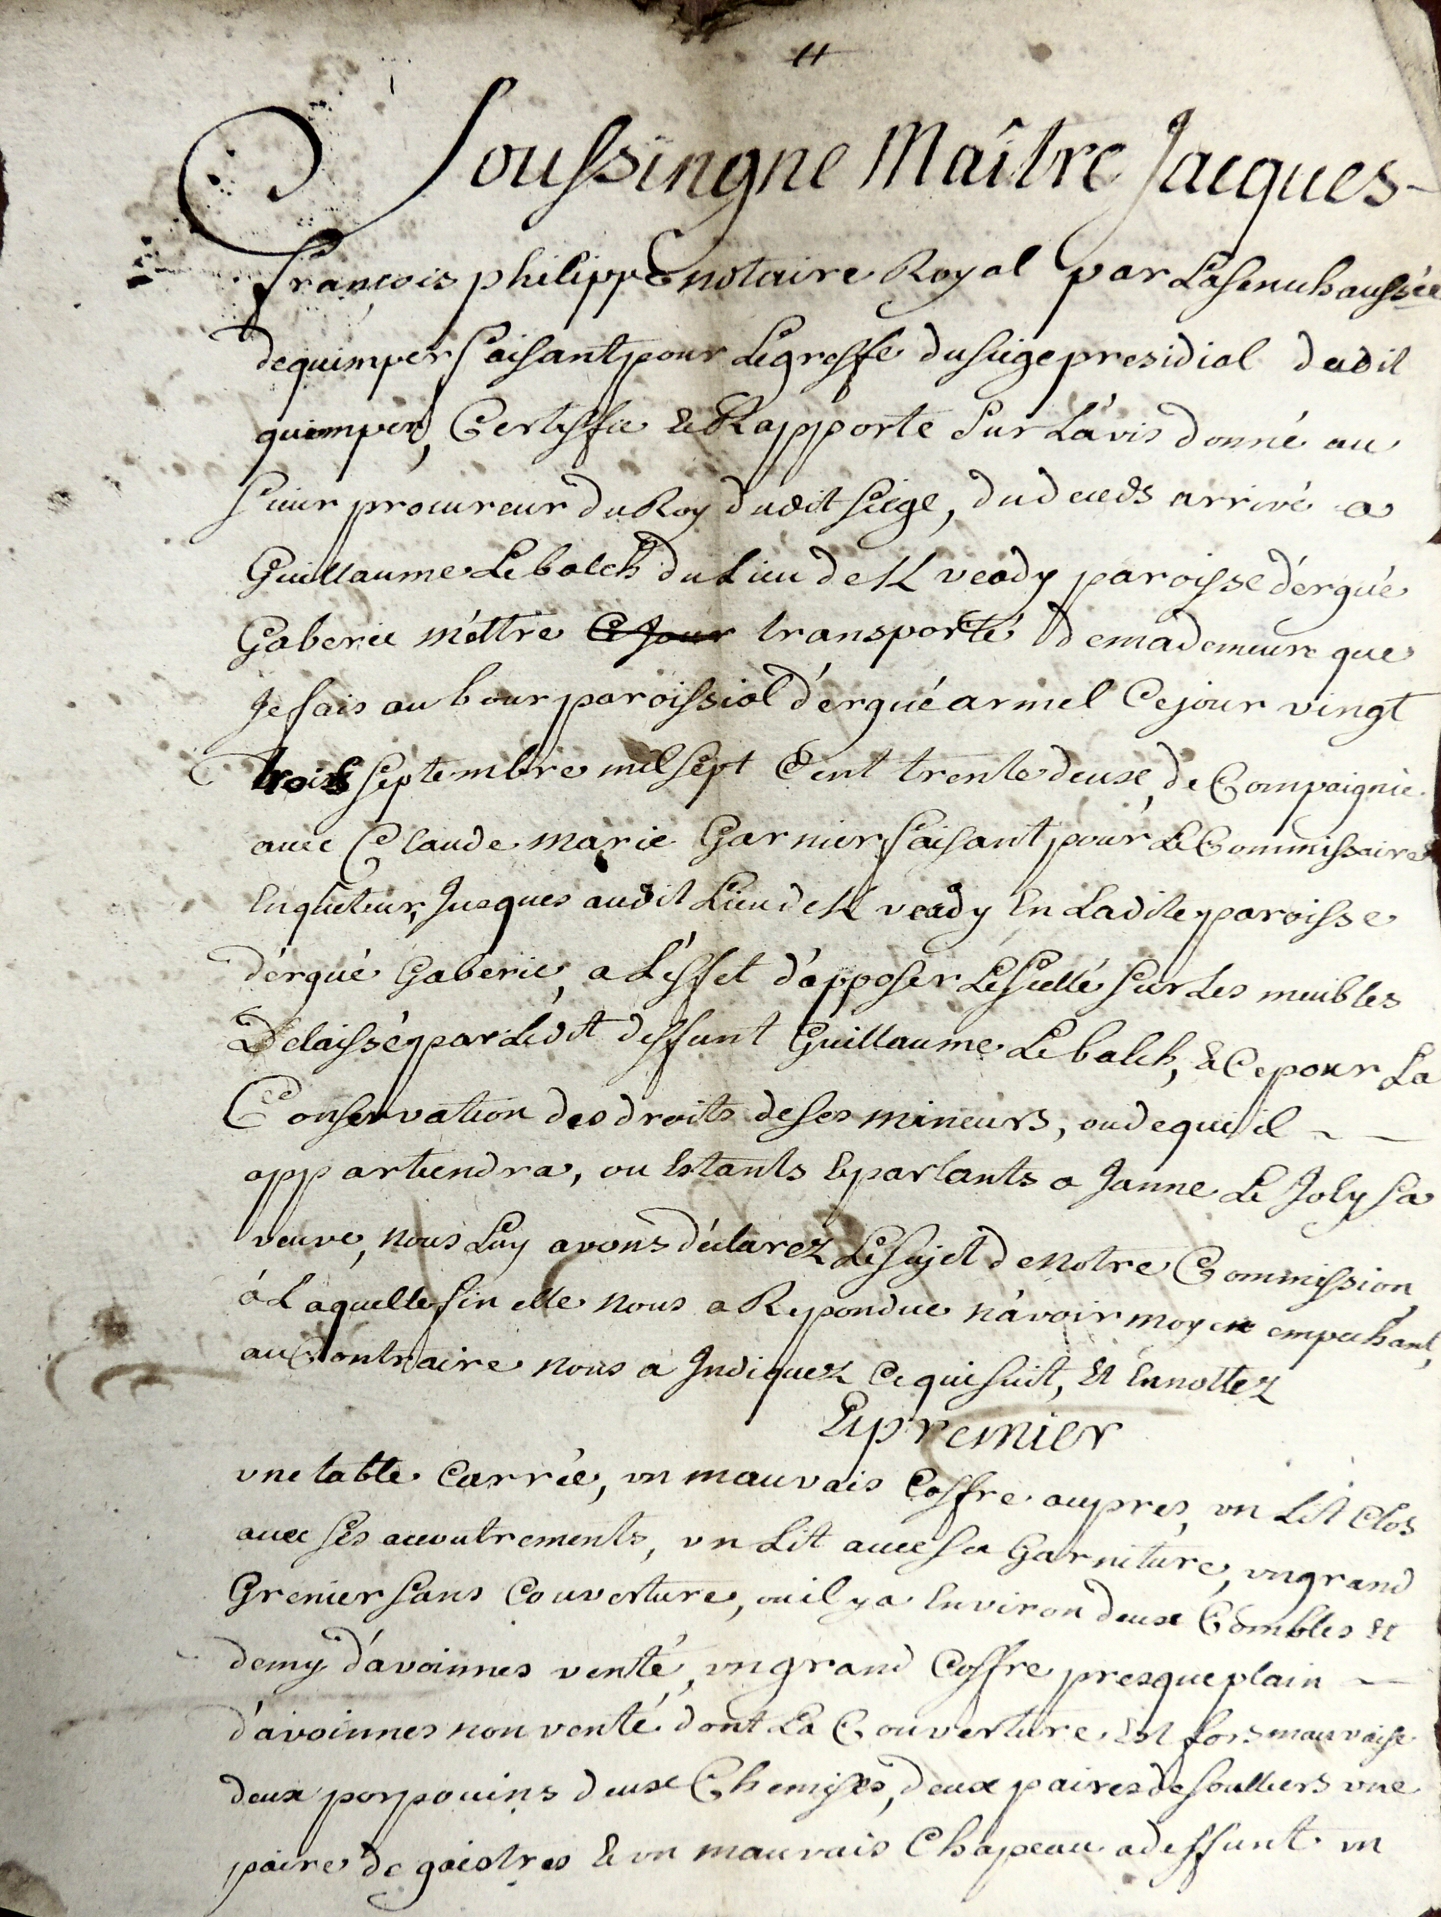 Soussingne Maître Jacques
françois philippe notaire Royal par Lasenechaussée
de quimper faisant pour Legreffe dusiege presidial dudit
quimper, Certiffie & Rapporte sur L'avis donné au
sieur procureur du Roy dudit siege, du deceds arrivé a
Guillaume Le balch du Lieu de K veady paroisse d'ergué
Gaberic m'ettre ce jour transporté de ma demeure que
je fais au bour paroissial d'ergué armel Ce jour vingt
trois septembre mil sept Cent trente deux, de Compaignie
avec Claude marie Garnier faisant pour Le Commissaire
Enquêteur, Jusques audit Lieu de K veady En Ladite paroisse
d'ergué Gaberic, a L'effet d'apposer Le scellé sur Les meubles
Delaissé par Ledit deffunt Guillaume Le balch, & Ce pour La
Conservation des droits de ses mineurs, ou de qui il
appartiendra, ou Estants & parlants a Janne Le Joly sa
veuve, nous Luy avons déclarez Le sujet de notre Commission,
à Laquelle fin elle nous a Repondue n'avoir moyen empechant,
au Contraire nous a Indiquez Ce qui suit, Et En nottez
En premier
une table Carrée, un mauvais Coffre aupres, un Lit Clos
avec ses accoutrements, un Lit avec sa Garniture, un grand
Grenier sans Couverture, ou il y a Environ deux Combles Et
demy d'avoinnes venté, un grand Coffre presque plain
d'avoinnes non venté dont La Couverture Est fors mauvaise
deux porpouins deux Chemises, deux paires de soulliers une
paire de gaistres & un mauvais Chapeau a deffunt un